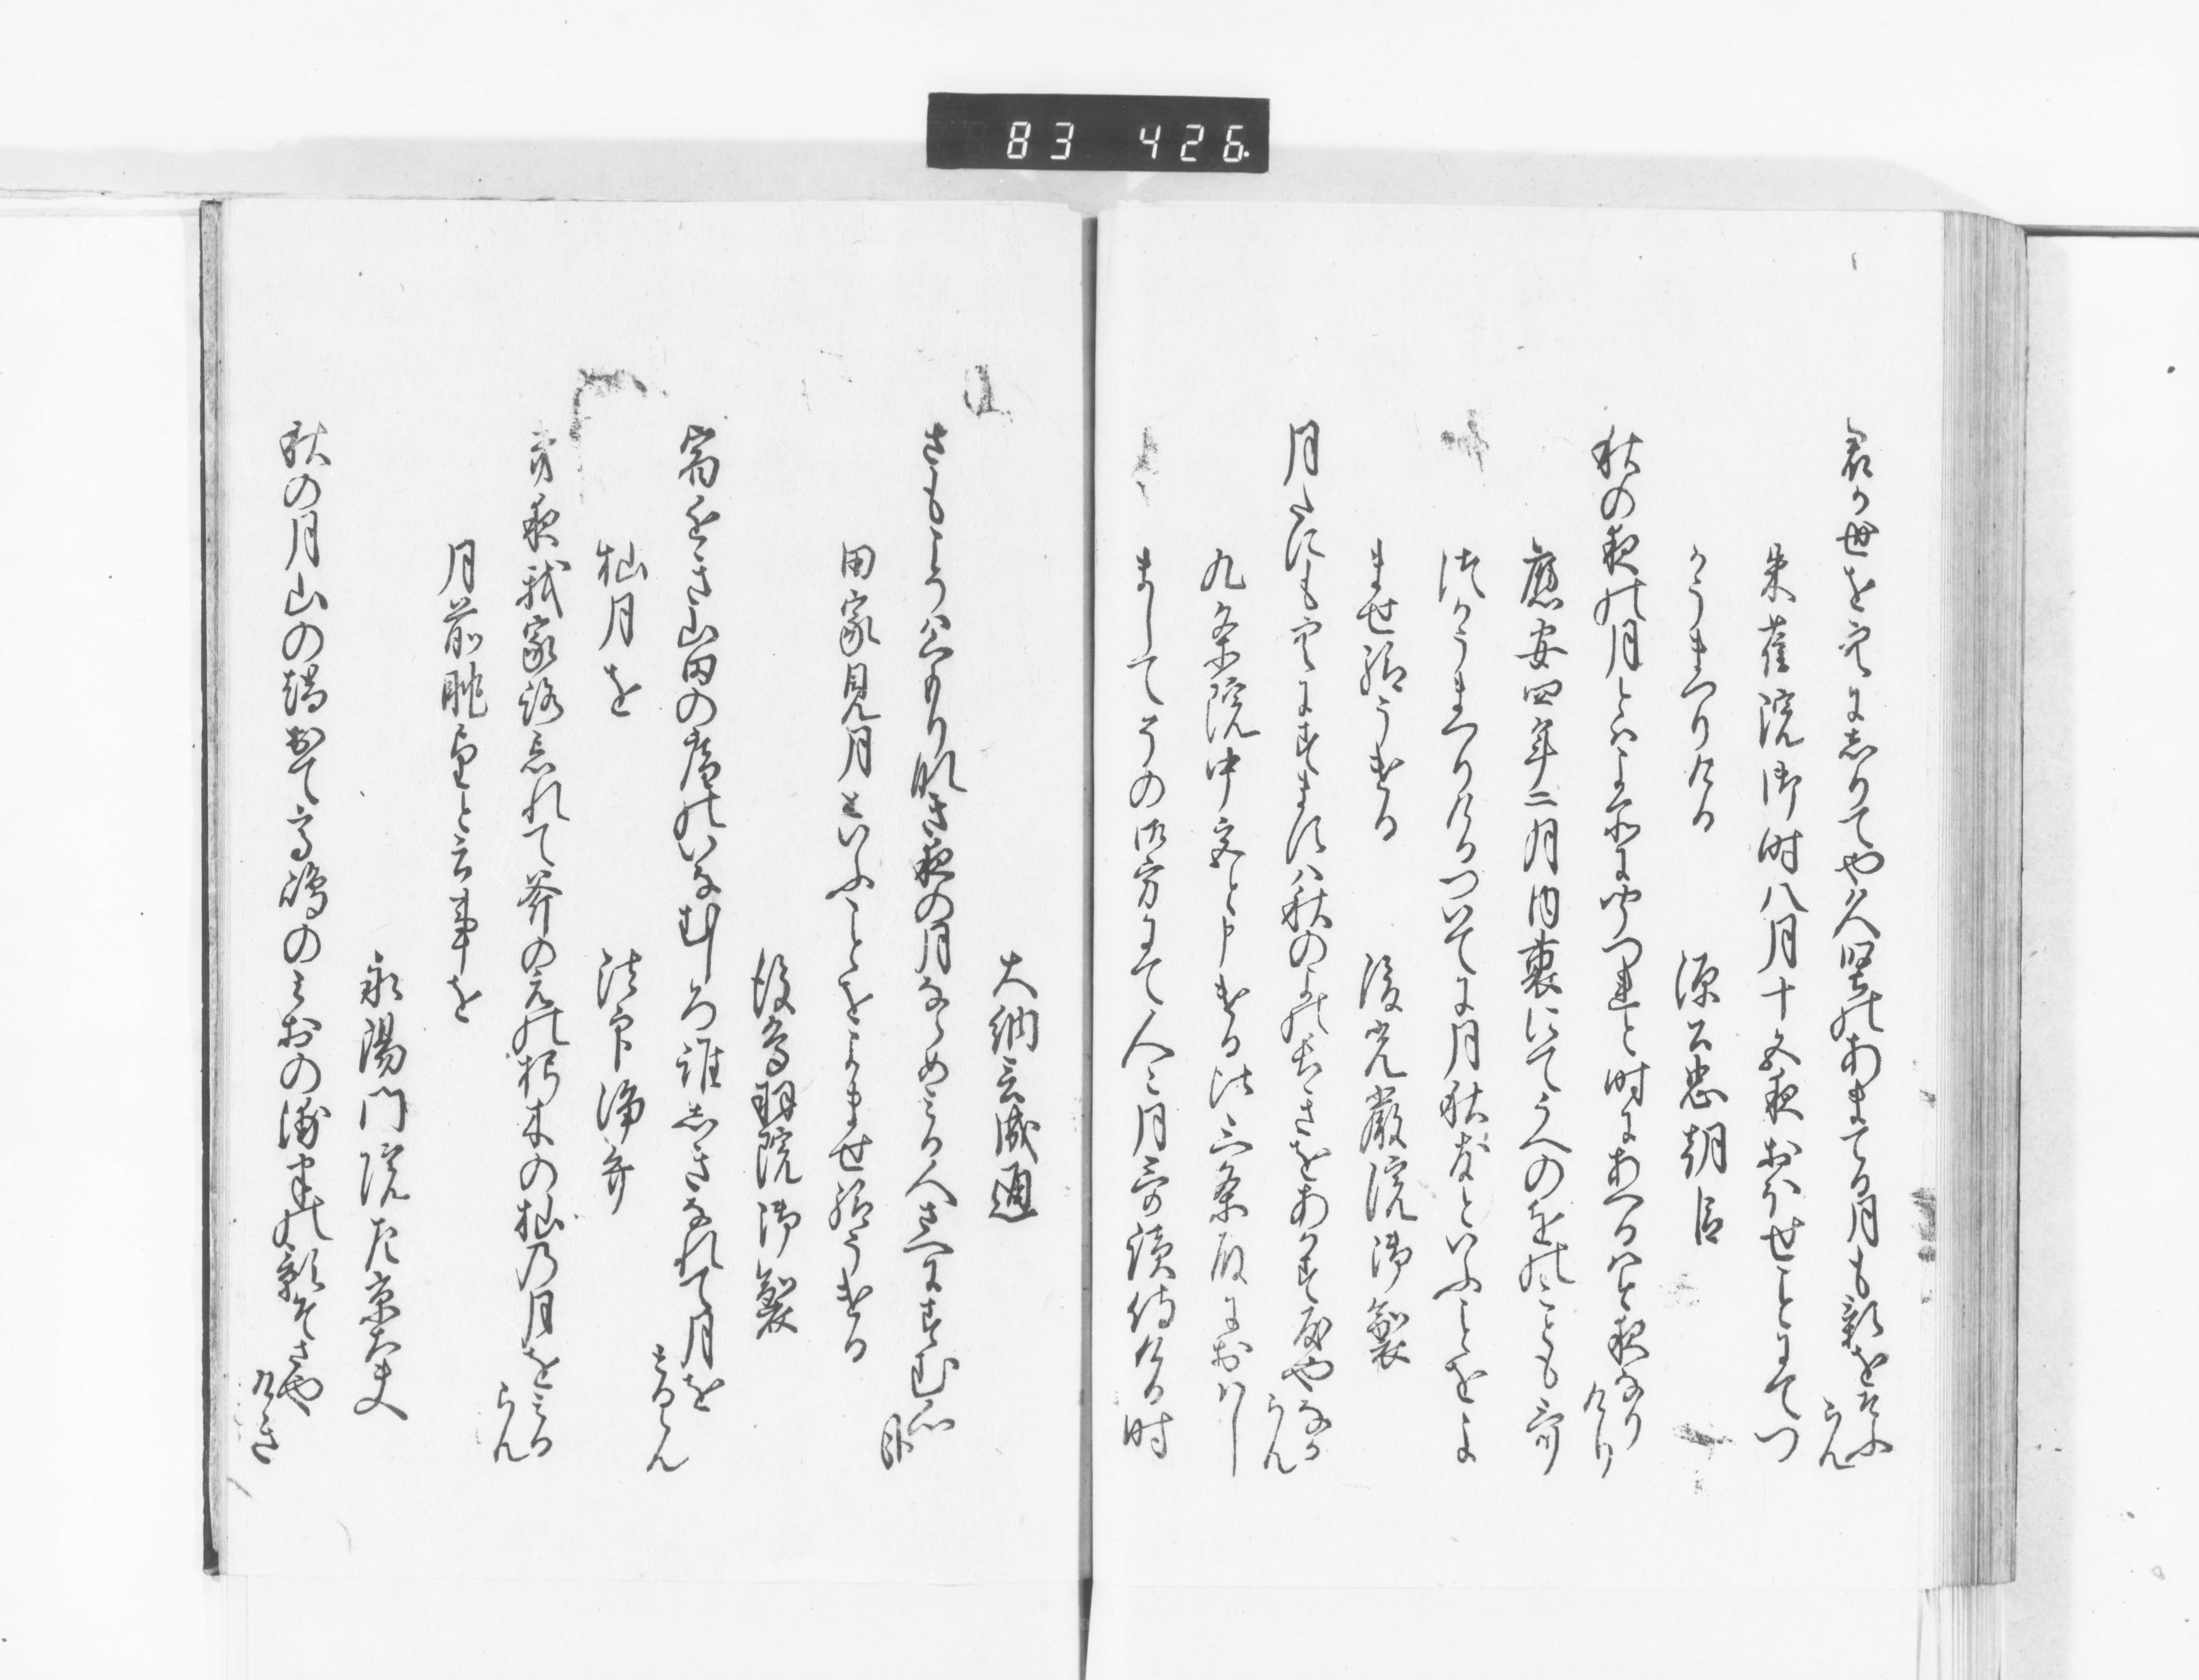 83 426
君か世を空にしりてや久堅のあまてる月も影をそふらん
朱雀院御時八月十五夜おほせことにてつ
かうまつりける　源公忠朝臣
秋の夜の月とハよそに つれと時にあへるは 夜なりけり
應安四年二月内裏にてうへのをのことも哥
つかうまつりけるついてに月秋友といふことをよ
ませ給うける　後光厳院御製
月たにも空にすますハ秋のよの長きをあかす友やなからん
九条院中宮と申ける比三条殿におハし
まして の御方にて人々月哥読侍ける時
大納言成通
さもこそハくもりなき夜の月ならめみる人さへにすむ心哉
田家見月といふことをよませ給うける
後鳥羽院御製
宿とをき山田の庵のいなむしろ誰しきなれて月をみるらん
杣月を　法印浄弁
夜我家路忘れて斧の元の朽木の杣乃月をみるらん
月前眺望と云事を
永陽門院左京大夫
秋の月山の端出て高嶋のみおの浦半の影そさやけき